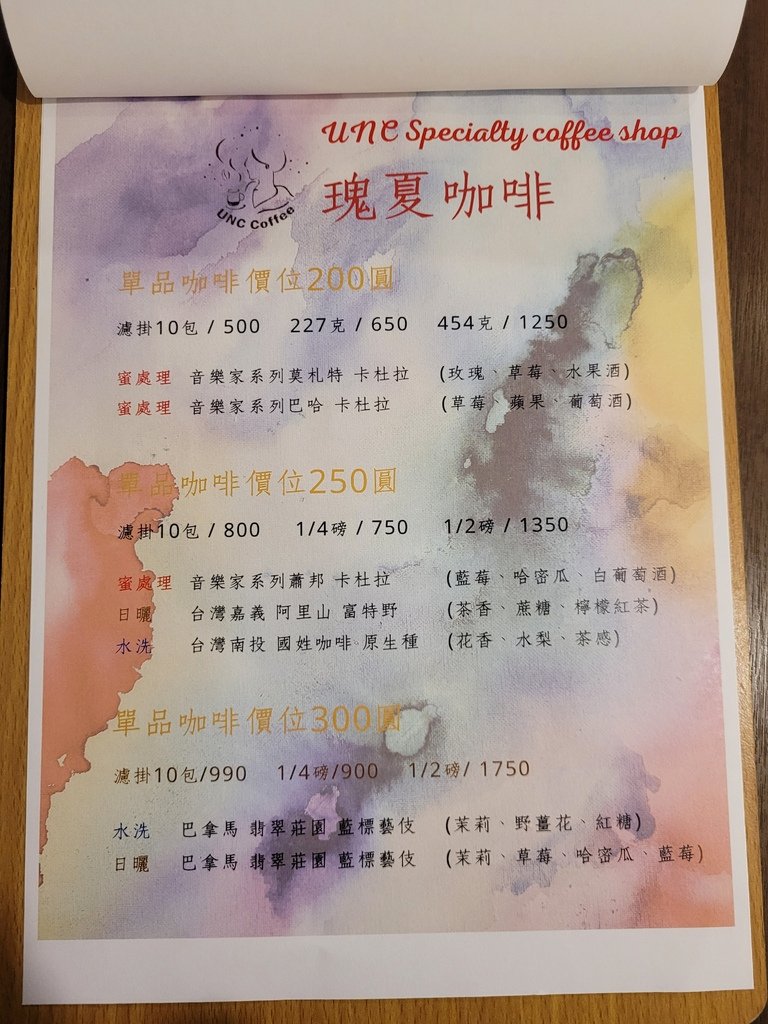 UNC Specialty coffee shop
UNC Coffee
瑰夏咖啡
單品咖啡價位200圓
濾掛10包 / 500 227克 / 650 454克 / 1250
蜜處理 音樂家系列莫札特 卡杜拉 (玫瑰、草莓、水果酒)
蜜處理 音樂家系列巴哈 卡杜拉 (草莓、蘋果、葡萄酒)
單品咖啡價位250圓
濾掛10包 / 800 1/4磅 / 750 1/2磅 / 1350
蜜處理 音樂家系列蕭邦 卡杜拉 (藍莓、哈密瓜、白葡萄酒)
日曬 台灣嘉義 阿里山 富特野 (茶香、蔗糖、檸檬紅茶)
水洗 台灣南投 國姓咖啡 原生種 (花香、水梨、茶感)
單品咖啡價位300圓
濾掛10包/990 1/4磅/900 1/2磅/ 1750
水洗 巴拿馬 翡翠莊園 藍標藝伎 (茉莉、野薑花、紅糖)
日曬 巴拿馬 翡翠莊園 藍標藝伎 (茉莉、草莓、哈密瓜、藍莓)